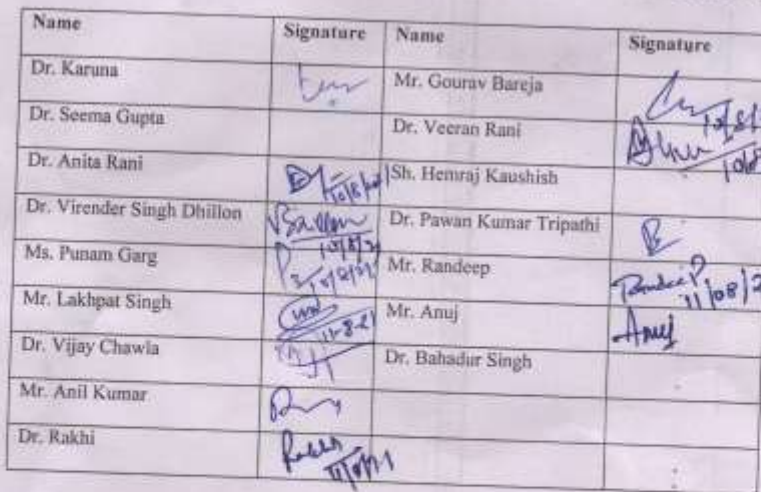 Name Signature Name Signature
Dr. Karuna Mr. Gourav Bareja
Dr. Seema Gupta Dr. Veeran Rani
Dr. Anita Rani 10/8/2021 Sh. Hemraj Kaushish
Dr. Virender Singh Dhillon Dr. Pawan Kumar Tripathi
Ms. Punam Garg Mr. Randeep Randeep 11/08/2
Mr. Lakhpat Singh 11-8-21 Mr. Anuj Anuj
Dr. Vijay Chawla Dr. Bahadur Singh
Mr. Anil Kumar
Dr. Rakhi Rakhi